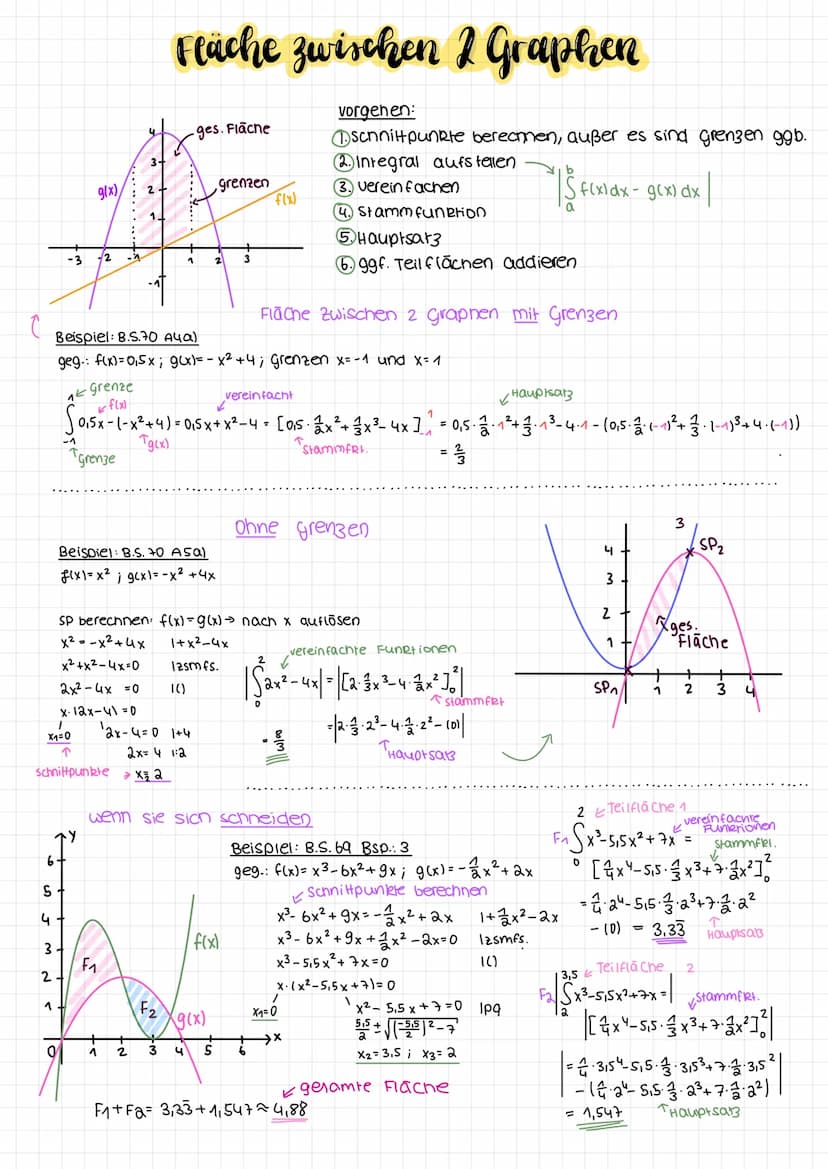 Fläche zwischen 2 Graphen
vorgehen:
① Schnittpunkte berechnen, außer es sind Grenzen ggb.
② Integral aufstellen
③ vereinfachen
④ Stammfunktion
⑤ Hauptsatz
⑥ ggf. Teilflächen addieren
|∫ₐᵇ f(x)dx - g(x)dx|
ges. Fläche
grenzen
g(x)
f(x)
4
3
2
1
-1
-3 -2 -1 1 2 3
Fläche zwischen 2 Graphen mit Grenzen
Beispiel: B.S.70 A4a)
geg.: f(x)=0,5x ; g(x)=-x²+4 ; Grenzen x=-1 und x=1
Grenze
f(x)
vereinfacht
Hauptsatz
∫₋₁¹ 0,5x-(-x²+4) = 0,5x+x²-4 = [0,5·1/2x²+1/3x³-4x]₋₁¹ = 0,5·1/2·1²+1/3·1³-4·1-(0,5·1/2·(-1)²+1/3·(-1)³+4·(-1))
g(x)
Grenze
Stammfkt.
= 2/3
Ohne Grenzen
Beispiel: B.S.70 A5a)
f(x)=x² ; g(x)=-x²+4x
SP berechnen: f(x)=g(x)→ nach x auflösen
x²=-x²+4x |+x²-4x
x²+x²-4x=0 |zsmfs.
2x²-4x =0 |()
x·(2x-4)=0
x₁=0 2x-4=0 |+4
2x=4 |:2
Schnittpunkte → x₂=2
vereinfachte Funktionen
|∫₀² 2x²-4x| = |[2·1/3x³-4·1/2x²]₀²|
Stammfkt
=|2·1/3·2³-4·1/2·2²-(0)|
= 8/3
Hauptsatz
3
4
3
2
1
SP₂
ges. Fläche
SP₁
1 2 3 4
wenn sie sich schneiden
Beispiel: B.S.69 Bsp.:3
geg.: f(x)=x³-6x²+9x ; g(x)=-1/2x²+2x
Schnittpunkte berechnen
x³-6x²+9x=-1/2x²+2x |+1/2x²-2x
x³-6x²+9x+1/2x²-2x=0 |zsmfs.
x³-5,5x²+7x=0 |()
x·(x²-5,5x+7)=0
x₁=0 x²-5,5x+7=0 |pq
5,5/2±√((-5,5/2)²-7
x₂=3,5 ; x₃=2
y
6
5
4
3
2
1
0 1 2 3 4 5 6
x
F₁
F₂
f(x)
g(x)
gesamte Fläche
F₁+F₂= 3,33+1,547≈4,88
2 Teilfläche 1
vereinfachte Funktionen
F₁ ∫₀ x³-5,5x²+7x =
Stammfkt.
[1/4x⁴-5,5·1/3x³+7·1/2x²]₀²
=1/4·2⁴-5,5·1/3·2³+7·1/2·2²
-(0) = 3,33
Hauptsatz
3,5 Teilfläche 2
F₂ |∫₂ x³-5,5x²+7x=|
Stammfkt.
|[1/4x⁴-5,5·1/3x³+7·1/2x²]₀²|
|=1/4·3,5⁴-5,5·1/3·3,5³+7·1/2·3,5²
-(1/4·2⁴-5,5·1/3·2³+7·1/2·2²)|
= 1,547
Hauptsatz